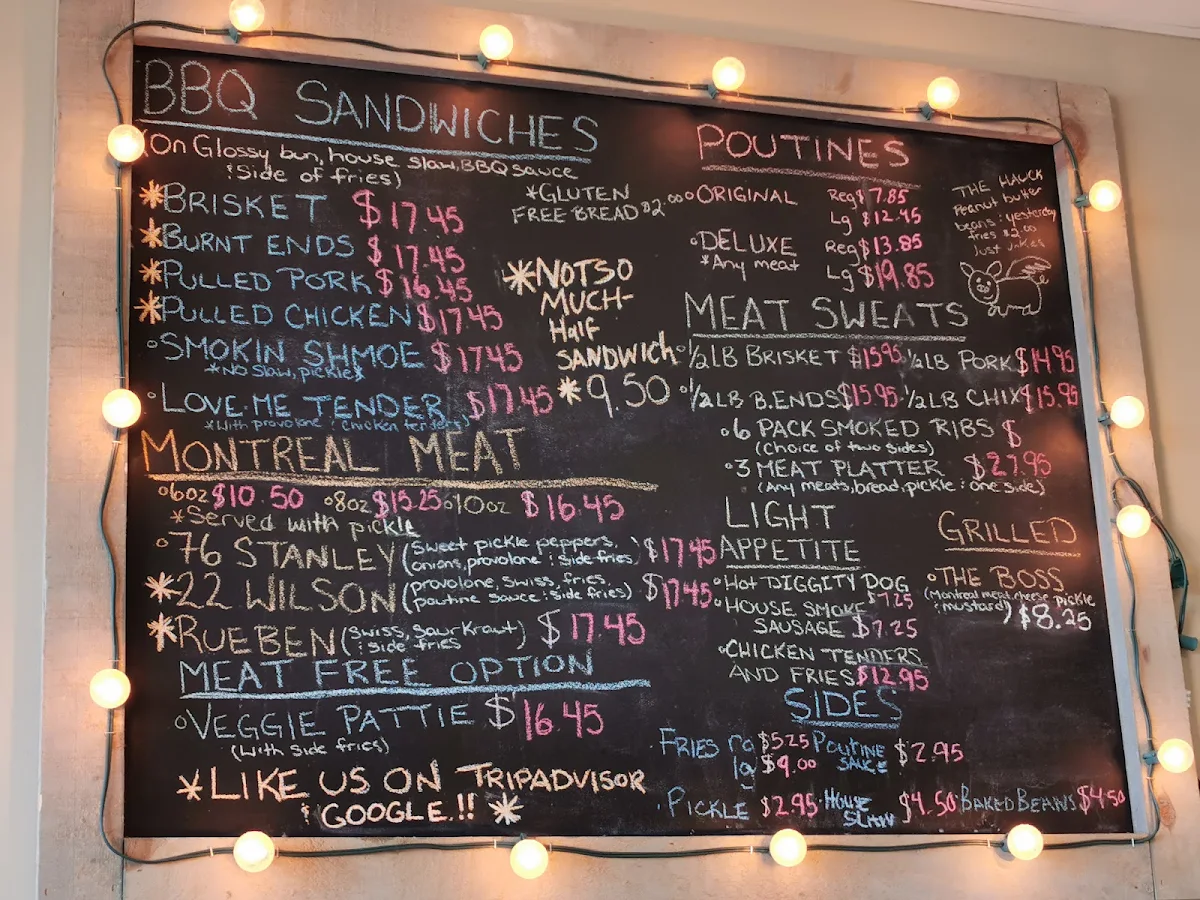 BBQ SANDWICHES
(On Glossy bun, house slaw, BBQ sauce
Side of fries)
*BRISKET $17.45
*BURNT ENDS $17.45
*PULLED PORK $16.45
*PULLED CHICKEN $17.45
SMOKIN SHMOE $17.45
*NO Slaw, pickles
LOVE ME TENDER $17.45
*With provolone & chicken tenders
*GLUTEN
FREE BREAD $2.00
*NOT SO
MUCH-
Half
SANDWICH
*9.50
MONTREAL MEAT
6oz $10.50 8oz $15.25 10oz $16.45
*Served with pickle
76 STANLEY (Sweet pickle peppers, onions, provolone & side fries) $17.45
*22 WILSON (provolone, swiss, fries, poutine sauce & side fries) $17.45
*RUEBEN (Swiss, Saurkraut & side fries) $17.45
MEAT FREE OPTION
VEGGIE PATTIE $16.45
(with side fries)
*LIKE US ON TRIPADVISOR
& GOOGLE.!! *
POUTINES
ORIGINAL Reg $7.85
Lg $12.45
DELUXE Reg $13.85
*Any meat Lg $19.85
THE HAWK
Peanut butter
beans & yesterday
fries $2.00
Just
MEAT SWEATS
1/2LB BRISKET $15.95 1/2LB PORK $14.95
1/2LB B.ENDS $15.95 1/2LB CHIX $15.95
6 PACK SMOKED RIBS $
(Choice of two sides)
3 MEAT PLATTER $27.95
(Any meats, bread, pickle & one side)
LIGHT
APPETITE
HOT DIGGITY DOG
$7.25
HOUSE SMOKE
SAUSAGE $7.25
CHICKEN TENDERS
AND FRIES $12.95
GRILLED
THE BOSS
(Montreal meat, cheese, pickle
& mustard) $8.25
SIDES
FRIES rg $5.25 POUTINE SAUCE $2.95
lg $9.00
PICKLE $2.95 HOUSE SLAW $4.50 BAKED BEANS $4.50